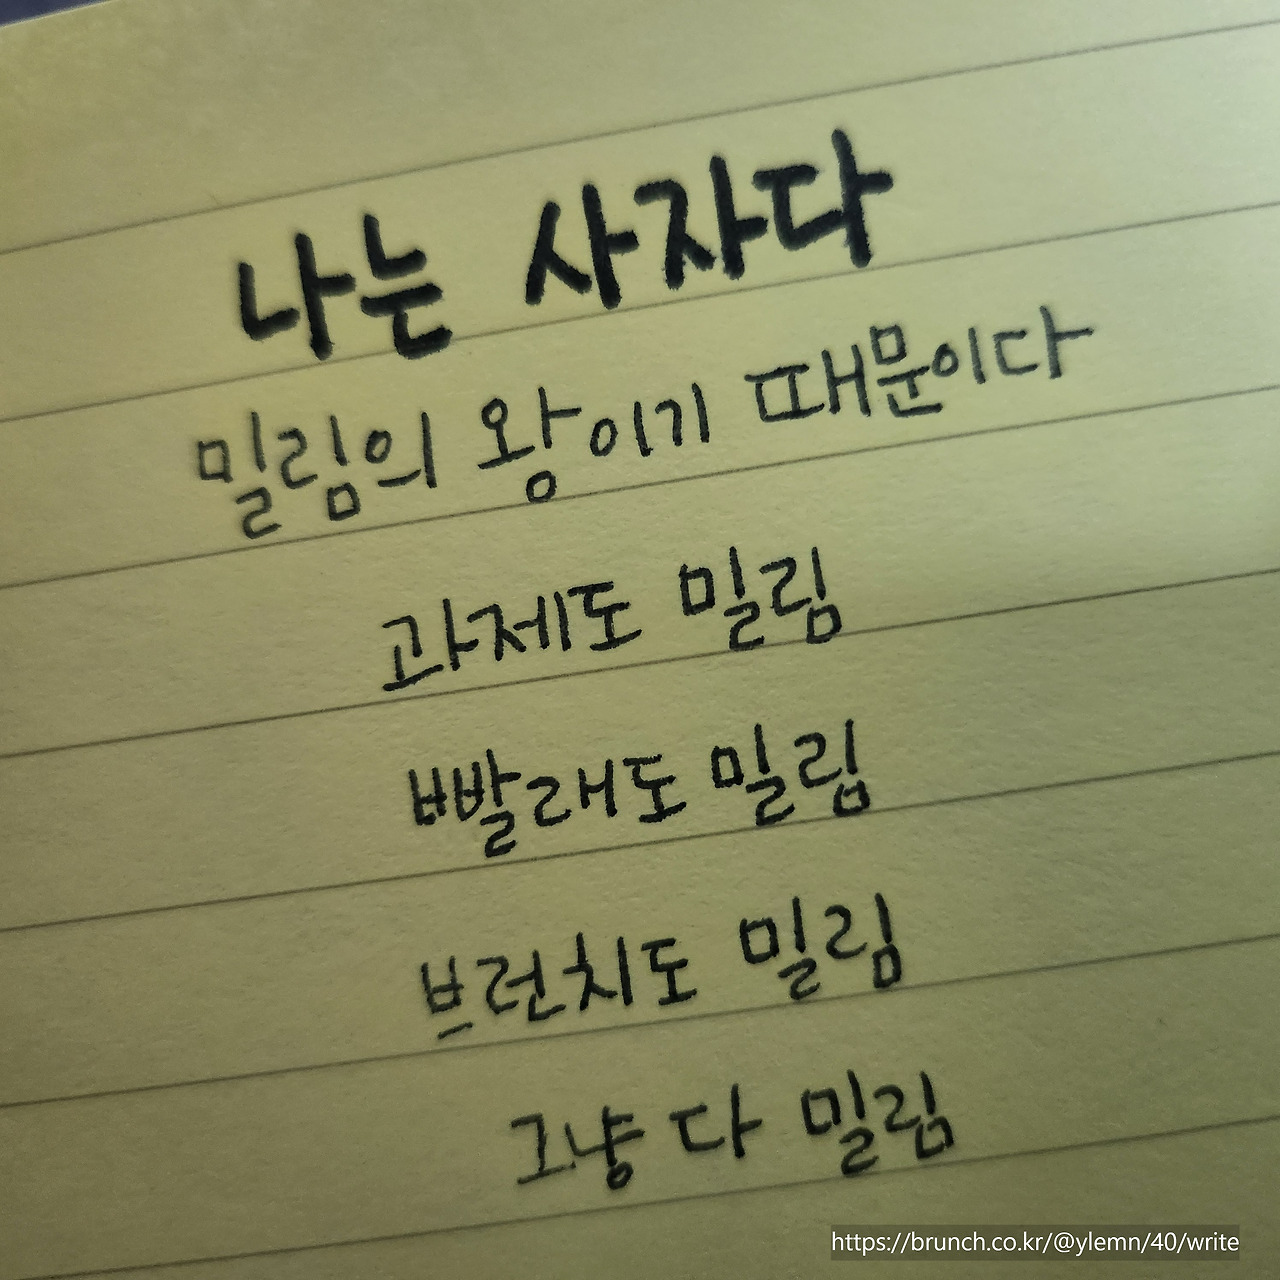 나는 사자다
밀림의 왕이기 때문이다
과제도 밀림
빨래도 밀림
브런치도 밀림
그냥 다 밀림
https://brunch.co.kr/@ylemn/40/write